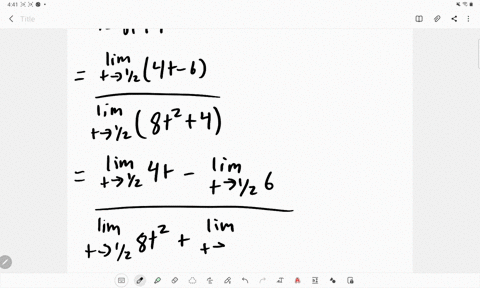 4:41
Title
= lim t→1/2 (4t-6)
lim t→1/2 (8t²+4)
= lim t→1/2 4t - lim t→1/2 6
lim t→1/2 8t² + lim t→